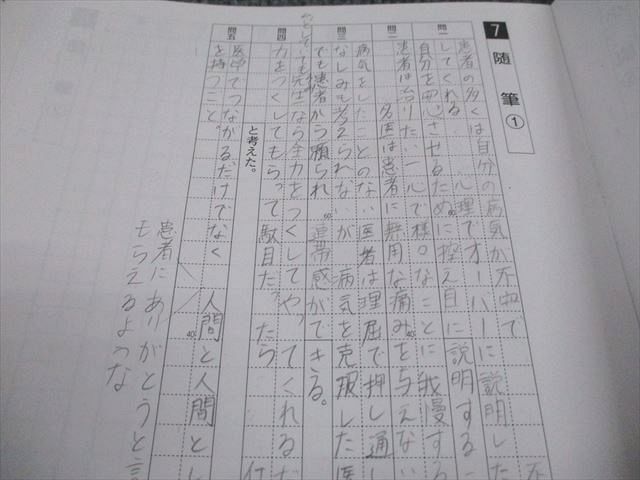 7 随筆①
問一
患者の多くは自分の病気が不
してくれる 心理でオーバーに説明した
自分を安心させるために控え目に説明する
問二
患者は治りたい一心で様々なことに我慢する
名医は患者に無用な痛みを与えない
問三
病気をしたことのない医者は理屈で押し通し
なしみも考えられないが病気を克服した医
でも患者から頼られ連帯感ができる。
問四
力をつくしてもらって駄目だったら
と考えた。
問五
医学でつながるだけでなく 人間と人間とし
を持つこと。
患者にありがとうと言
もらえるような